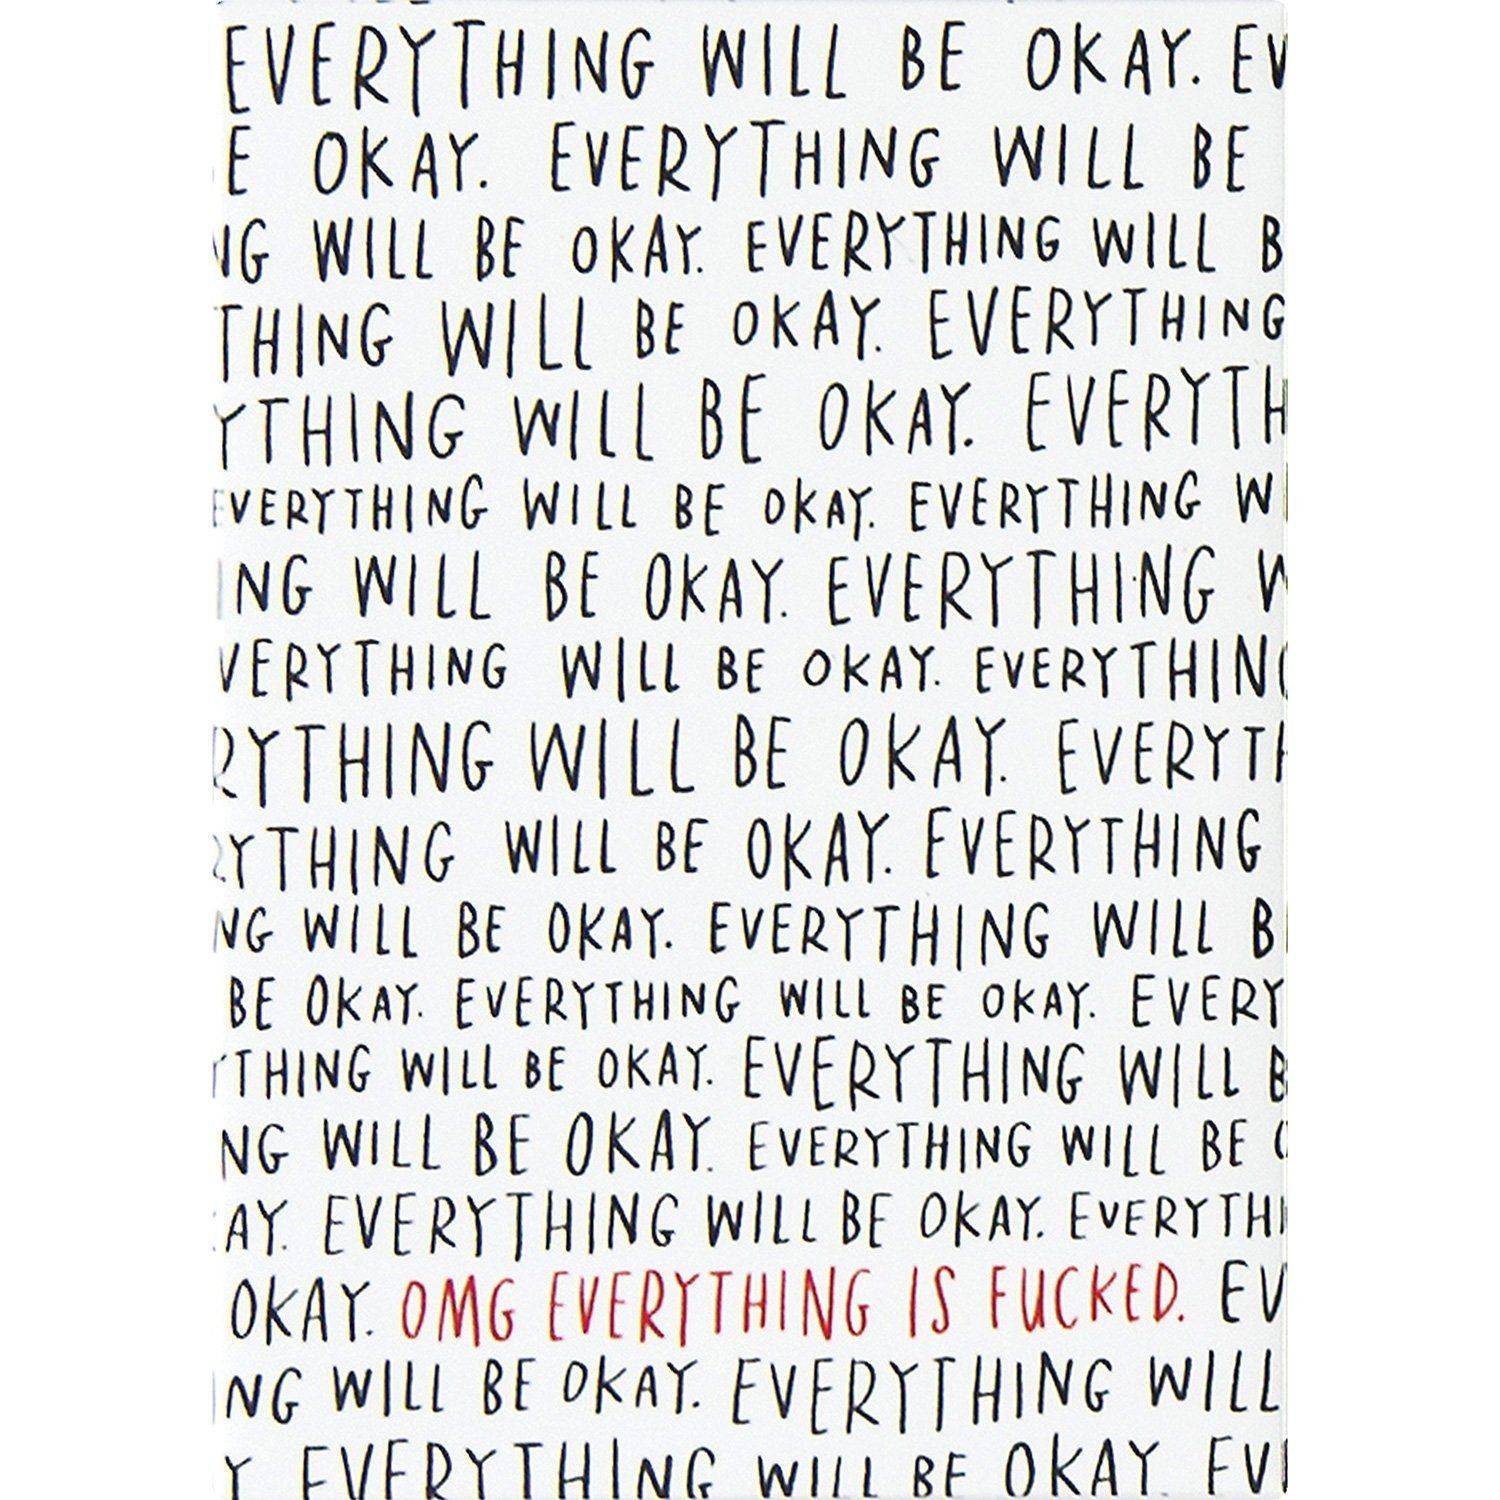 EVERYTHING WILL BE OKAY. EV
E OKAY. EVERYTHING WILL BE
NG WILL BE OKAY. EVERYTHING WILL B
THING WILL BE OKAY. EVERYTHING
YTHING WILL BE OKAY. EVERYTH
EVERYTHING WILL BE OKAY. EVERYTHING W
ING WILL BE OKAY. EVERYTHING W
VERYTHING WILL BE OKAY. EVERYTHING
RYTHING WILL BE OKAY. EVERYTH
RYTHING WILL BE OKAY. EVERYTHING
NG WILL BE OKAY. EVERYTHING WILL B
BE OKAY. EVERYTHING WILL BE OKAY. EVERY
THING WILL BE OKAY. EVERYTHING WILL B
NG WILL BE OKAY. EVERYTHING WILL BE O
AY. EVERYTHING WILL BE OKAY. EVERYTHI
OKAY. OMG EVERYTHING IS FUCKED. EV
NG WILL BE OKAY. EVERYTHING WILL
Y EVERYTHING WILL BE OKAY. EV